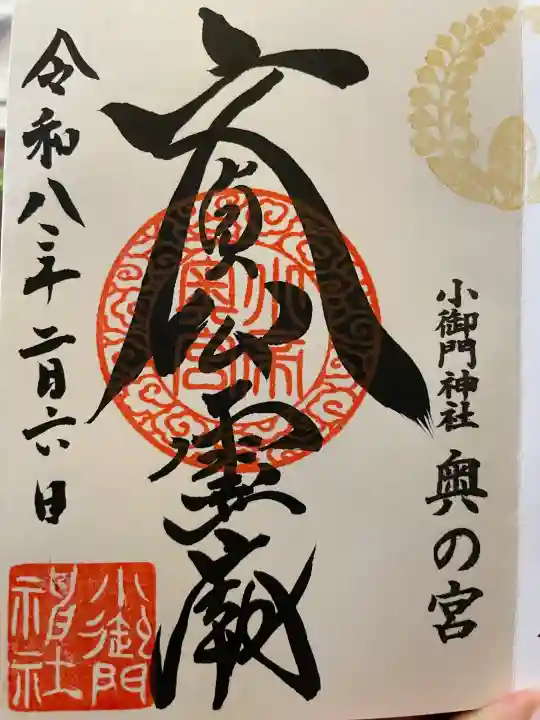 小御門神社 奥の宮
文貞公霊蔵
令和八年二月六日
小御門神社